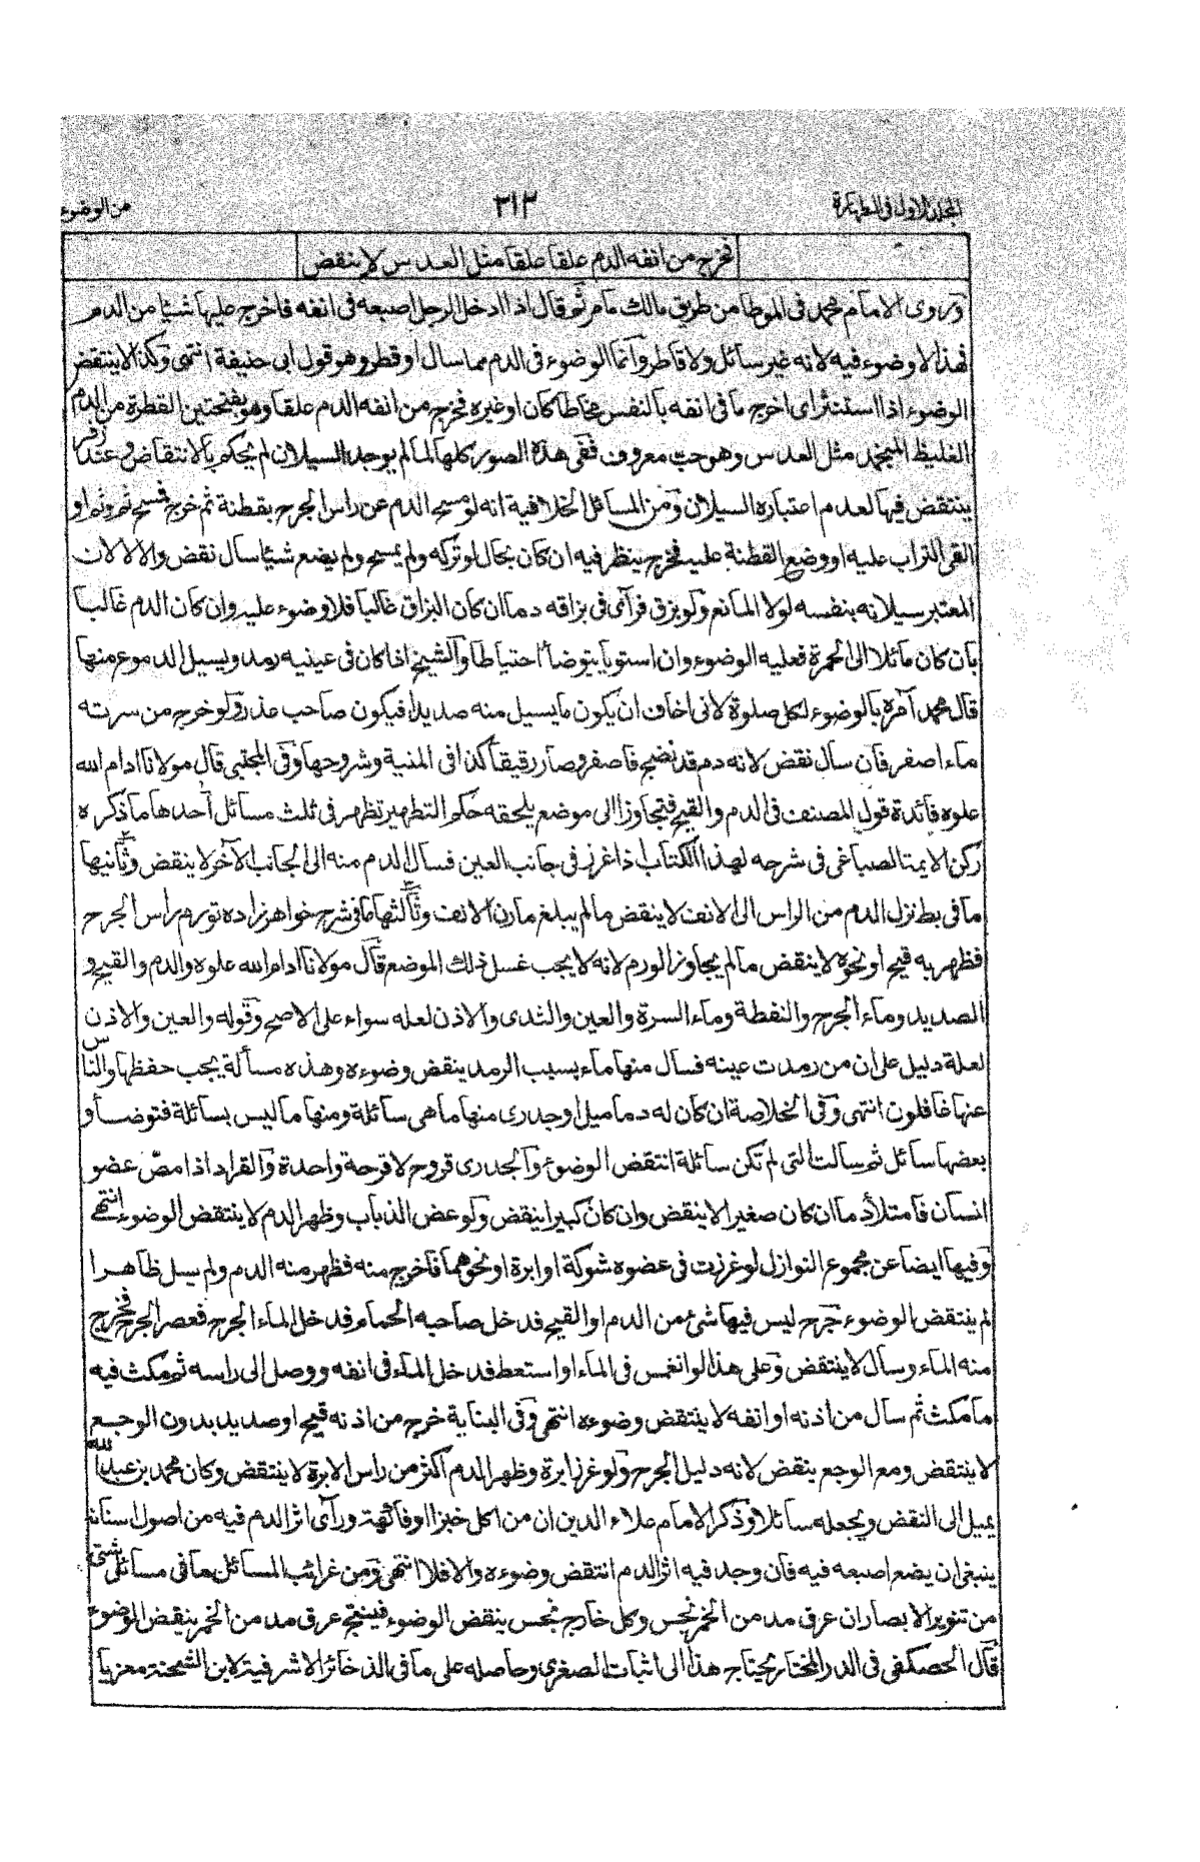 المجلد الاول فى الطهارة
٢١٣
من الوضوء
فخرج من انفه الدم علقا علقا مثل العدس لا ينقض
وروى الامام محمد فى الموطا من طريق مالك مامر ثم قال اذا ادخل الرجل اصبعه فى انفه فاخرج عليها شيئا من الدم
فهذا لا وضوء فيه لانه غير سائل ولا قاطر وانما الوضوء فى الدم مما سال او قطر وهو قول ابى حنيفة انتهى وكذا لا ينتقض
الوضوء اذا استنثر اى اخرج ما فى انفه بالنفس مخاطا كان او غيره فخرج من انفه الدم علقا وهو بفتحتين القطرة من الدم
الغليظ المنجمد مثل العدس وهو حب معروف ففى هذه الصور كلها لما لم يوجد السيلان لم يحكم بالانتقاض وعند زفر
ينتقض فيها لعدم اعتباره السيلان ومن المسائل الخلافية انه لو مسح الدم عن راس الجرح بقطنة ثم خرج فمسح ثم وثم او
القى التراب عليه او وضع القطنة عليه فخرج ينظر فيه ان كان بحال لو تركه ولم يمسح ولم يضع شيئا سال نقض والا لا لان
المعتبر سيلانه بنفسه لولا المانع ولو بزق فرآى فى بزاقه دما ان كان البزاق غالبا فلا وضوء عليه وان كان الدم غالبا
بان كان مائلا الى الحمرة فعليه الوضوء وان استويا يتوضأ احتياطا والشيخ اذا كان فى عينيه رمد ويسيل الدموع منها
قال محمد آمره بالوضوء لكل صلوة لانى اخاف ان يكون ما يسيل منه صديدا فيكون صاحب عذر ولو خرج من سرته
ماء اصفر فان سال نقض لانه دم قد نضج فاصفر وصار رقيقا كذا فى المنية وشروحها وفى المجتبى قال مولانا ادام الله
علوه فائدة قول المصنف فى الدم والقيح فتجاوزا الى موضع يلحقه حكم التطهير تظهر فى ثلث مسائل احدها ما ذكره
ركن الايمة الصباغى فى شرحه لهذا الكتاب اذا غرز فى جانب العين فسال الدم منه الى الجانب الآخر لا ينقض وثانيها
ما فى بط نزل الدم من الراس الى الانف لا ينقض ما لم يبلغ مارن الانف وثالثها ما فى شرح خواهرزاده تورم راس الجرح
فظهر به قيح او نحوه لا ينقض ما لم يجاوز الورم لانه لا يجب غسل ذلك الموضع قال مولانا ادام الله علوه والدم والقيح و
الصديد وماء الجرح والنفطة وماء السرة والعين والثدى والاذن لعله سواء على الاصح وقوله والعين والاذن
لعلة دليل على ان من رمدت عينه فسال منها ماء بسبب الرمد ينقض وضوءه وهذه مسألة يجب حفظها والناس
عنها غافلون انتهى وفى الخلاصة ان كان له دماميل او جدرى منها ما هى سائلة ومنها ما ليس بسائلة فتوضأ و
بعضها سائل ثم سالت التى لم تكن سائلة انتقض الوضوء والجدرى قروح لا قرحة واحدة والقراد اذا مصّ عضو
انسان فامتلأ دما ان كان صغيرا لا ينقض وان كان كبيرا ينقض ولو عض الذباب وظهر الدم لا ينتقض الوضوء انتهى
وفيها ايضا عن مجموع النوازل لو غرزت فى عضوه شوكة او ابرة او نحوهما فاخرج منه فظهر منه الدم ولم يسل ظاهرا
لم ينتقض الوضوء جرح ليس فيها شئ من الدم او القيح فدخل صاحبه الحمام فدخل الماء الجرح فعصر الجرح فخرج
منه الماء وسال لا ينتقض وعلى هذا لو انغمس فى الماء او استعط فدخل الماء فى انفه ووصل الى راسه ثم مكث فيه
ما مكث ثم سال من اذنه او انفه لا ينتقض وضوءه انتهى وفى البناية خرج من اذنه قيح او صديد بدون الوجع
لا ينتقض ومع الوجع ينقض لانه دليل الجرح ولو غرز ابرة وظهر الدم اكثر من راس الابرة لا ينتقض وكان محمد بن عبد الله
يميل الى النقض ويجعله سائلا وذكر الامام علاء الدين ان من اكل خبزا او فاكهة ورآى اثر الدم فيه من اصول اسنانه
ينبغى ان يضع اصبعه فيه فان وجد فيه اثر الدم انتقض وضوءه والا فلا انتهى ومن غرائب المسائل ما فى مسائل شتى
من تنوير الابصار ان عرق مدمن الخمر نجس وكل خارج نجس ينقض الوضوء فينتج عرق مدمن الخمر ينقض الوضوء
قال الحصكفى فى الدر المختار يحتاج هذا الى اثبات الصغرى وحاصله على ما فى الذخائر الاشرفية لابن الشحنة معزيا